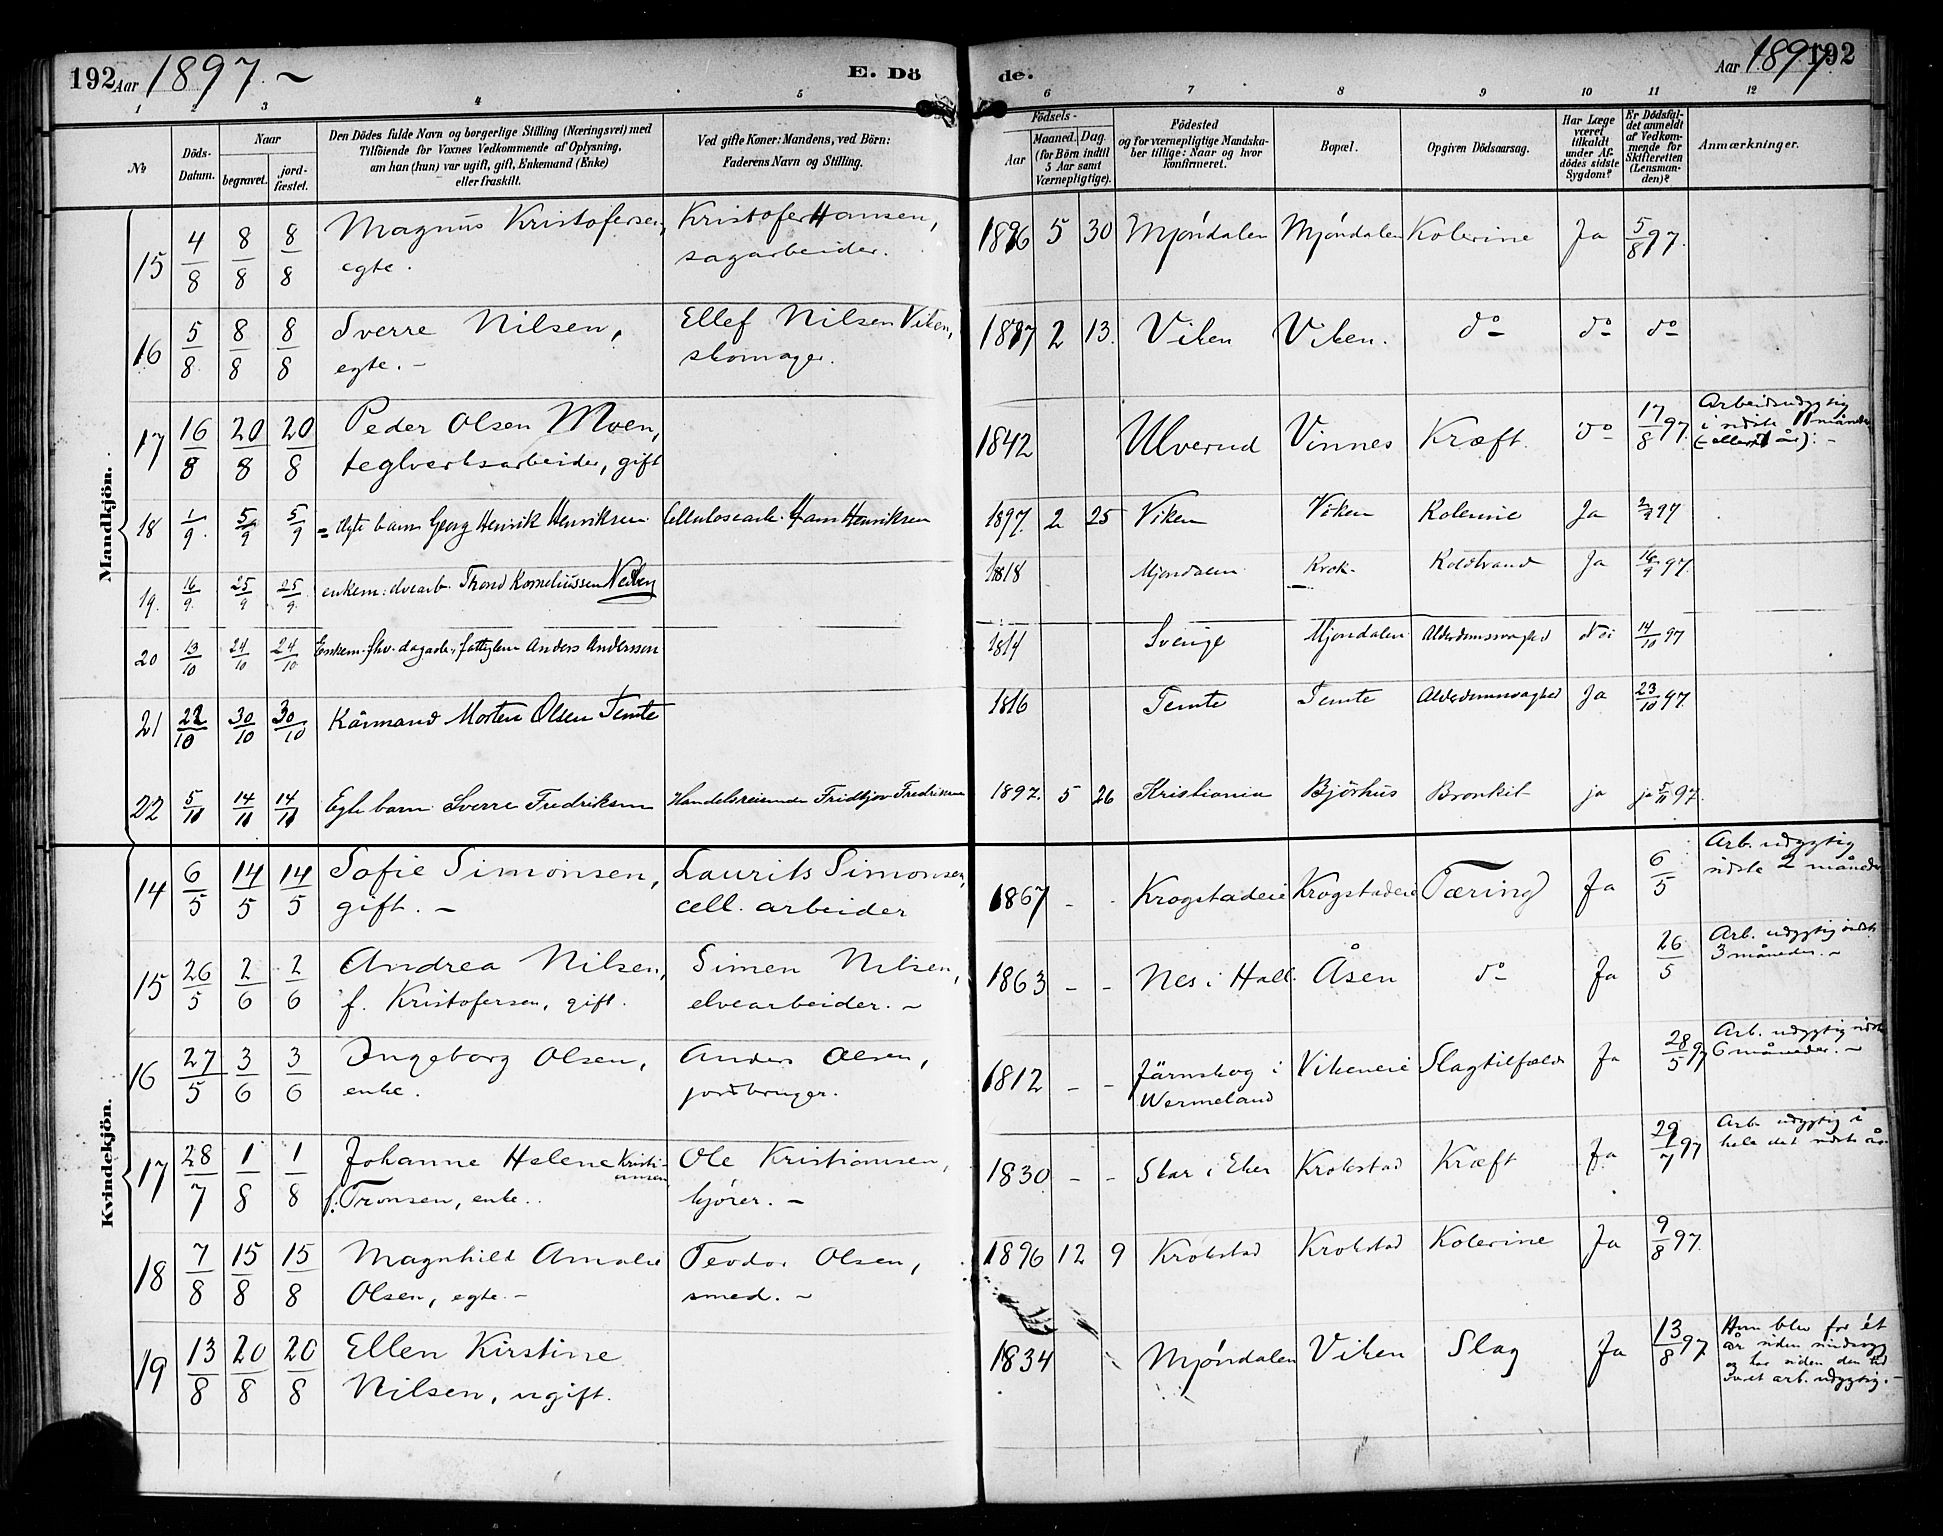 192 Aar 1897. ~ E. Dö de. Aar 1897. 192
1 2 3 4 5 6 7 8 9 10 11 12
№
Döds-Datum.
Naar
begravet.
jord-fæstet.
Den Dödes fulde Navn og borgerlige Stilling (Næringsvei) med
Tilföiende for Voxnes Vedkommende af Oplysning,
om han (hun) var ugift, gift, Enkemand (Enke)
eller fraskilt.
Ved gifte Koner: Mandens, ved Börn:
Faderens Navn og Stilling.
Födsels-
Aar
Maaned. Dag.
(for Börn indtil
5 Aar samt
Værnepligtige).
Födested
og for værnepligtige Mandska-
ber tillige: Naar og hvor
konfirmeret.
Bopæl.
Opgiven Dödsaarsag.
Har Læge
været
tilkaldt
under Af-
dödes sidste
Sygdom?
Er Dödsfal-
det anmeldt
af Vedkom-
mende for
Skifteretten
(Lensman-
den)?
Anmærkninger.
Mandkjön.
15 4/8 8/8 8/8 Magnus Kristofersen, Kristofer Hansen, 1896 5 30 Mjøndalen Mjøndalen Kolerine Ja 5/8 97.
egte. sagarbeider.
16 5/8 8/8 8/8 Sverre Nilsen, Ellef Nilsen Viken, 1897 2 13. Viken Viken. do do do
egte. – skomager.
17 16/8 20/8 20/8 Peder Olsen Moen, 1842 Ulverud Vinnes Kræft. do 17/8 97. Arbeidsudygtig
teglverksarbeider, gift i sidste måneder
18 1/9. 5/9 5/9 = Egte barn Georg Henrik Henriksen. Cellulosearb. Hans Henriksen 1897. 2 25 Viken Viken Kolerine Ja 2/9 97
19. 16/9. 25/9 25/9. enkem: elvearb. Trond Korneliussen 1818 Mjøndalen Krok. Koldbrand Ja 16/9 97.
20 13/10 24/10 24/10 Enkem. fhv. dagarb., fattiglem Anders Anderssen 1814 Sverige Mjøndalen Alderdomssvaghed Nei 14/10 97
21 22/10 30/10 30/10 Kårmand Morten Olsen Temte 1816 Temte Temte Alderdomssvaghed Ja 23/10 97.
22 5/11 14/11 14/11 Egte barn Sverre Fredriksen Handelsreisende Fridtjov Fredriksen 1897. 5 26 Kristiania Bjørhus Bronkit ja ja 5/11 97.
Kvindekjön.
14 6/5 14/5 14/5 Sofie Simonsen, Laurits Simonsen, 1867 - - Krogstadeie Krogstadeie Tæring Ja 6/5 Arb. udygtig
gift. – cell. arbeider sidste 2 måneder
15 26/5 2/6 2/6 Andrea Nilsen, Simen Nilsen, 1863 - - Nes i Hall. Åsen do Ja 26/5 Arb. udygtig sidste
f. Kristofersen, gift. elvearbeider. ~ 3 måneder. ~
16 27/5 3/6 3/6 Ingeborg Olsen, Anders Olsen, 1812 - - Järnskog i Vikeneie Slagtilfælde Ja 28/5 97 Arb. udygtig sidste
enke. jordbruger. Wermeland 6 måneder. ~
17 28/7 1/8 1/8 Johanne Helene Kristiansen Ole Kristiansen, 1830 - - Skar i Eker Krokstad Kræft Ja 29/7 97 Arb. udygtig i
f. Tronsen, enke. kjører. – hele det sidste år
18 7/8 15/8 15/8 Magnhild Amalie Teodor Olsen, 1896 12 9 Krokstad Krokstad Kolerine Ja 9/8 97.
Olsen, egte. – smed. ~
19 13/8 20/8 20/8 Ellen Kirstine 1834 Mjøndalen Viken Slag Ja 13/8 97 Hun blev for ét
Nilsen, ugift. år siden sindssyg
og har siden den tid
været arb. udygtig. –